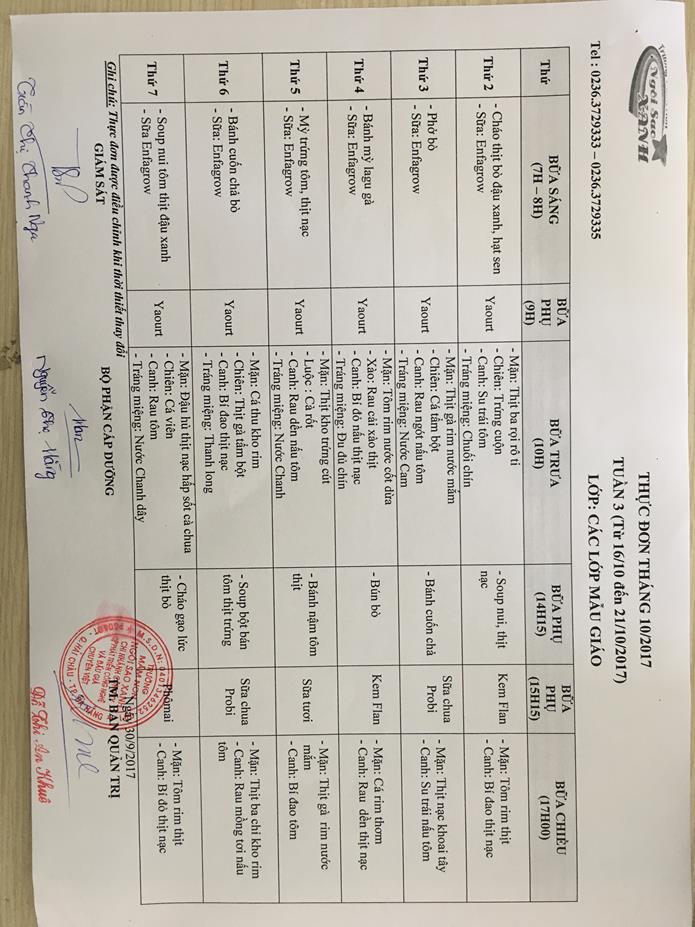 Ngôi Sao
XANH
Tel : 0236.3729333 – 0236.3729335
THỰC ĐƠN THÁNG 10/2017
TUẦN 3 (Từ 16/10 đến 21/10/2017)
LỚP: CÁC LỚP MẪU GIÁO
Thứ
BỮA SÁNG
(7H – 8H)
BỮA
PHỤ
(9H)
BỮA TRƯA
(10H)
BỮA PHỤ
(14H15)
BỮA
PHỤ
(15H15)
BỮA CHIỀU
(17H00)
Thứ 2
- Cháo thịt bò đậu xanh, hạt sen
- Sữa: Enfagrow
Yaourt
- Mặn: Thịt ba rọi rô ti
- Chiên: Trứng cuộn
- Canh: Su trái tôm
- Tráng miệng: Chuối chín
- Soup nui, thịt
nạc
Kem Flan
- Mặn: Tôm rim thịt
- Canh: Bí đao thịt nạc
Thứ 3
- Phở bò
- Sữa: Enfagrow
Yaourt
- Mặn: Thịt gà rim nước mắm
- Chiên: Cá tẩm bột
- Canh: Rau ngót nấu tôm
- Tráng miệng: Nước Cam
- Bánh cuốn chả
Sữa chua
Probi
- Mặn: Thịt nạc khoai tây
- Canh: Su trái nấu tôm
Thứ 4
- Bánh mỳ lagu gà
- Sữa: Enfagrow
Yaourt
- Mặn: Tôm rim nước cốt dừa
- Xào: Rau cải xào thịt
- Canh: Bí đỏ nấu thịt nạc
- Tráng miệng: Đu đủ chín
- Bún bò
Kem Flan
- Mặn: Cá rim thơm
- Canh: Rau dền thịt nạc
Thứ 5
- Mỳ trứng tôm, thịt nạc
- Sữa: Enfagrow
Yaourt
- Mặn: Thịt kho trứng cút
- Luộc : Cà rốt
- Canh: Rau dền nấu tôm
- Tráng miệng: Nước Chanh
- Bánh nậm tôm
thịt
Sữa tươi
- Mặn: Thịt gà rim nước
mắm
- Canh: Bí đao tôm
Thứ 6
- Bánh cuốn chả bò
- Sữa: Enfagrow
Yaourt
-Mặn: Cá thu kho rim
- Chiên: Thịt gà tẩm bột
- Canh: Bí đao thịt nạc
- Tráng miệng: Thanh long
- Soup bột bán
tôm thịt trứng
Sữa chua
Probi
- Mặn: Thịt ba chỉ kho rim
- Canh: Rau mồng tơi nấu
tôm
Thứ 7
- Soup nui tôm thịt đậu xanh
- Sữa Enfagrow
Yaourt
-Mặn: Đậu hủ thịt nạc hấp sốt cà chua
- Chiên: Cá viên
- Canh: Rau tôm
- Tráng miệng: Nước Chanh dây
- Cháo gạo lức
thịt bò
Phômai
- Mặn: Tôm rim thịt
- Canh: Bí đỏ thịt nạc
Ghi chú: Thực đơn được điều chỉnh khi thời thiết thay đổi
Ngày 30/9/2017
GIÁM SÁT
BỘ PHẬN CẤP DƯỠNG
TM. BAN QUẢN TRỊ
TRƯỜNG
MẦM NON
NGÔI SAO XANH
Q.HẢI CHÂU - TP.ĐÀ NẴNG
Trần Thị Thanh Nga
Đỗ Thị An Khuê